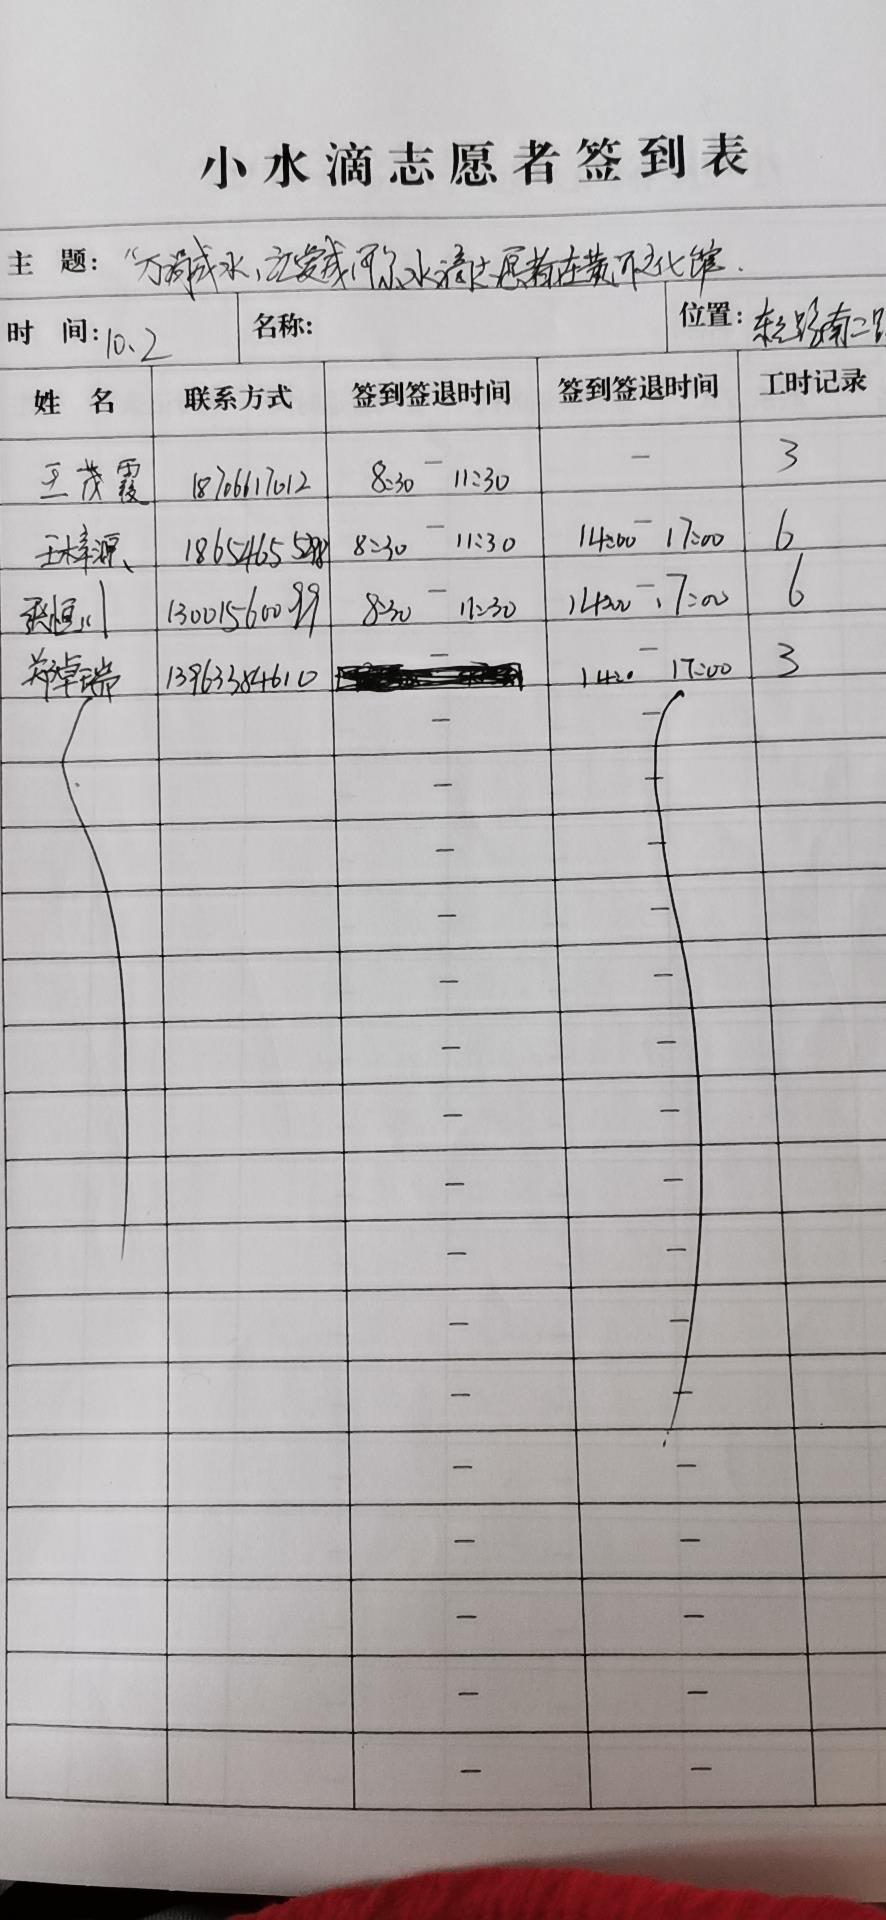 小水滴志愿者签到表
主 题: “万滴成水,汇爱成河”小水滴志愿者在黄河文化馆.
时 间: 10.2 名称: 位置: 东三路南二路
姓 名 联系方式 签到签退时间 签到签退时间 工时记录
王茂霞 18706617012 8:30 — 11:30 — 3
王梓源 18654655298 8:30 — 11:30 14:00 — 17:00 6
张恒川 13001560099 8:30 — 11:30 14:00 — 17:00 6
郑卓瑞 13963384610 — 14:00 — 17:00 3
— —
— —
— —
— —
— —
— —
— —
— —
— —
— —
— —
— —
— —
— —
— —
— —